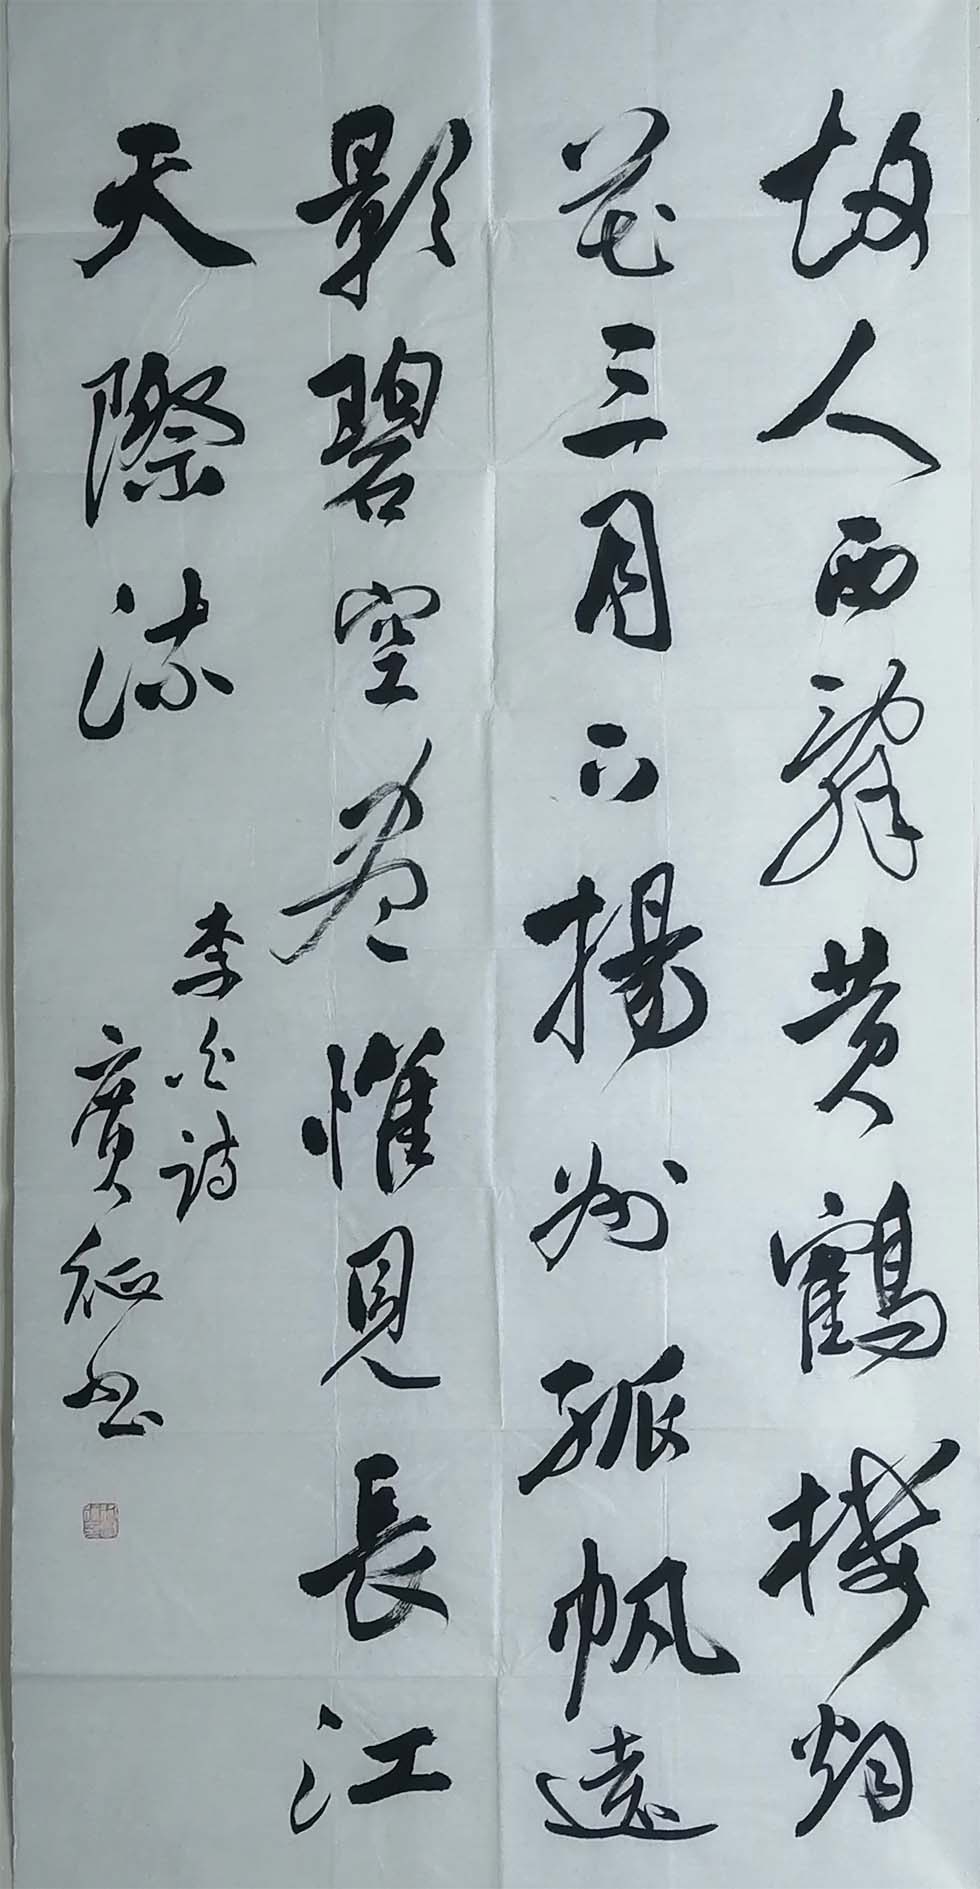 故人西辭黄鶴楼烟
花三月下揚州孤帆遠
影碧空尽惟見長江
天際流
李白詩
廣征书